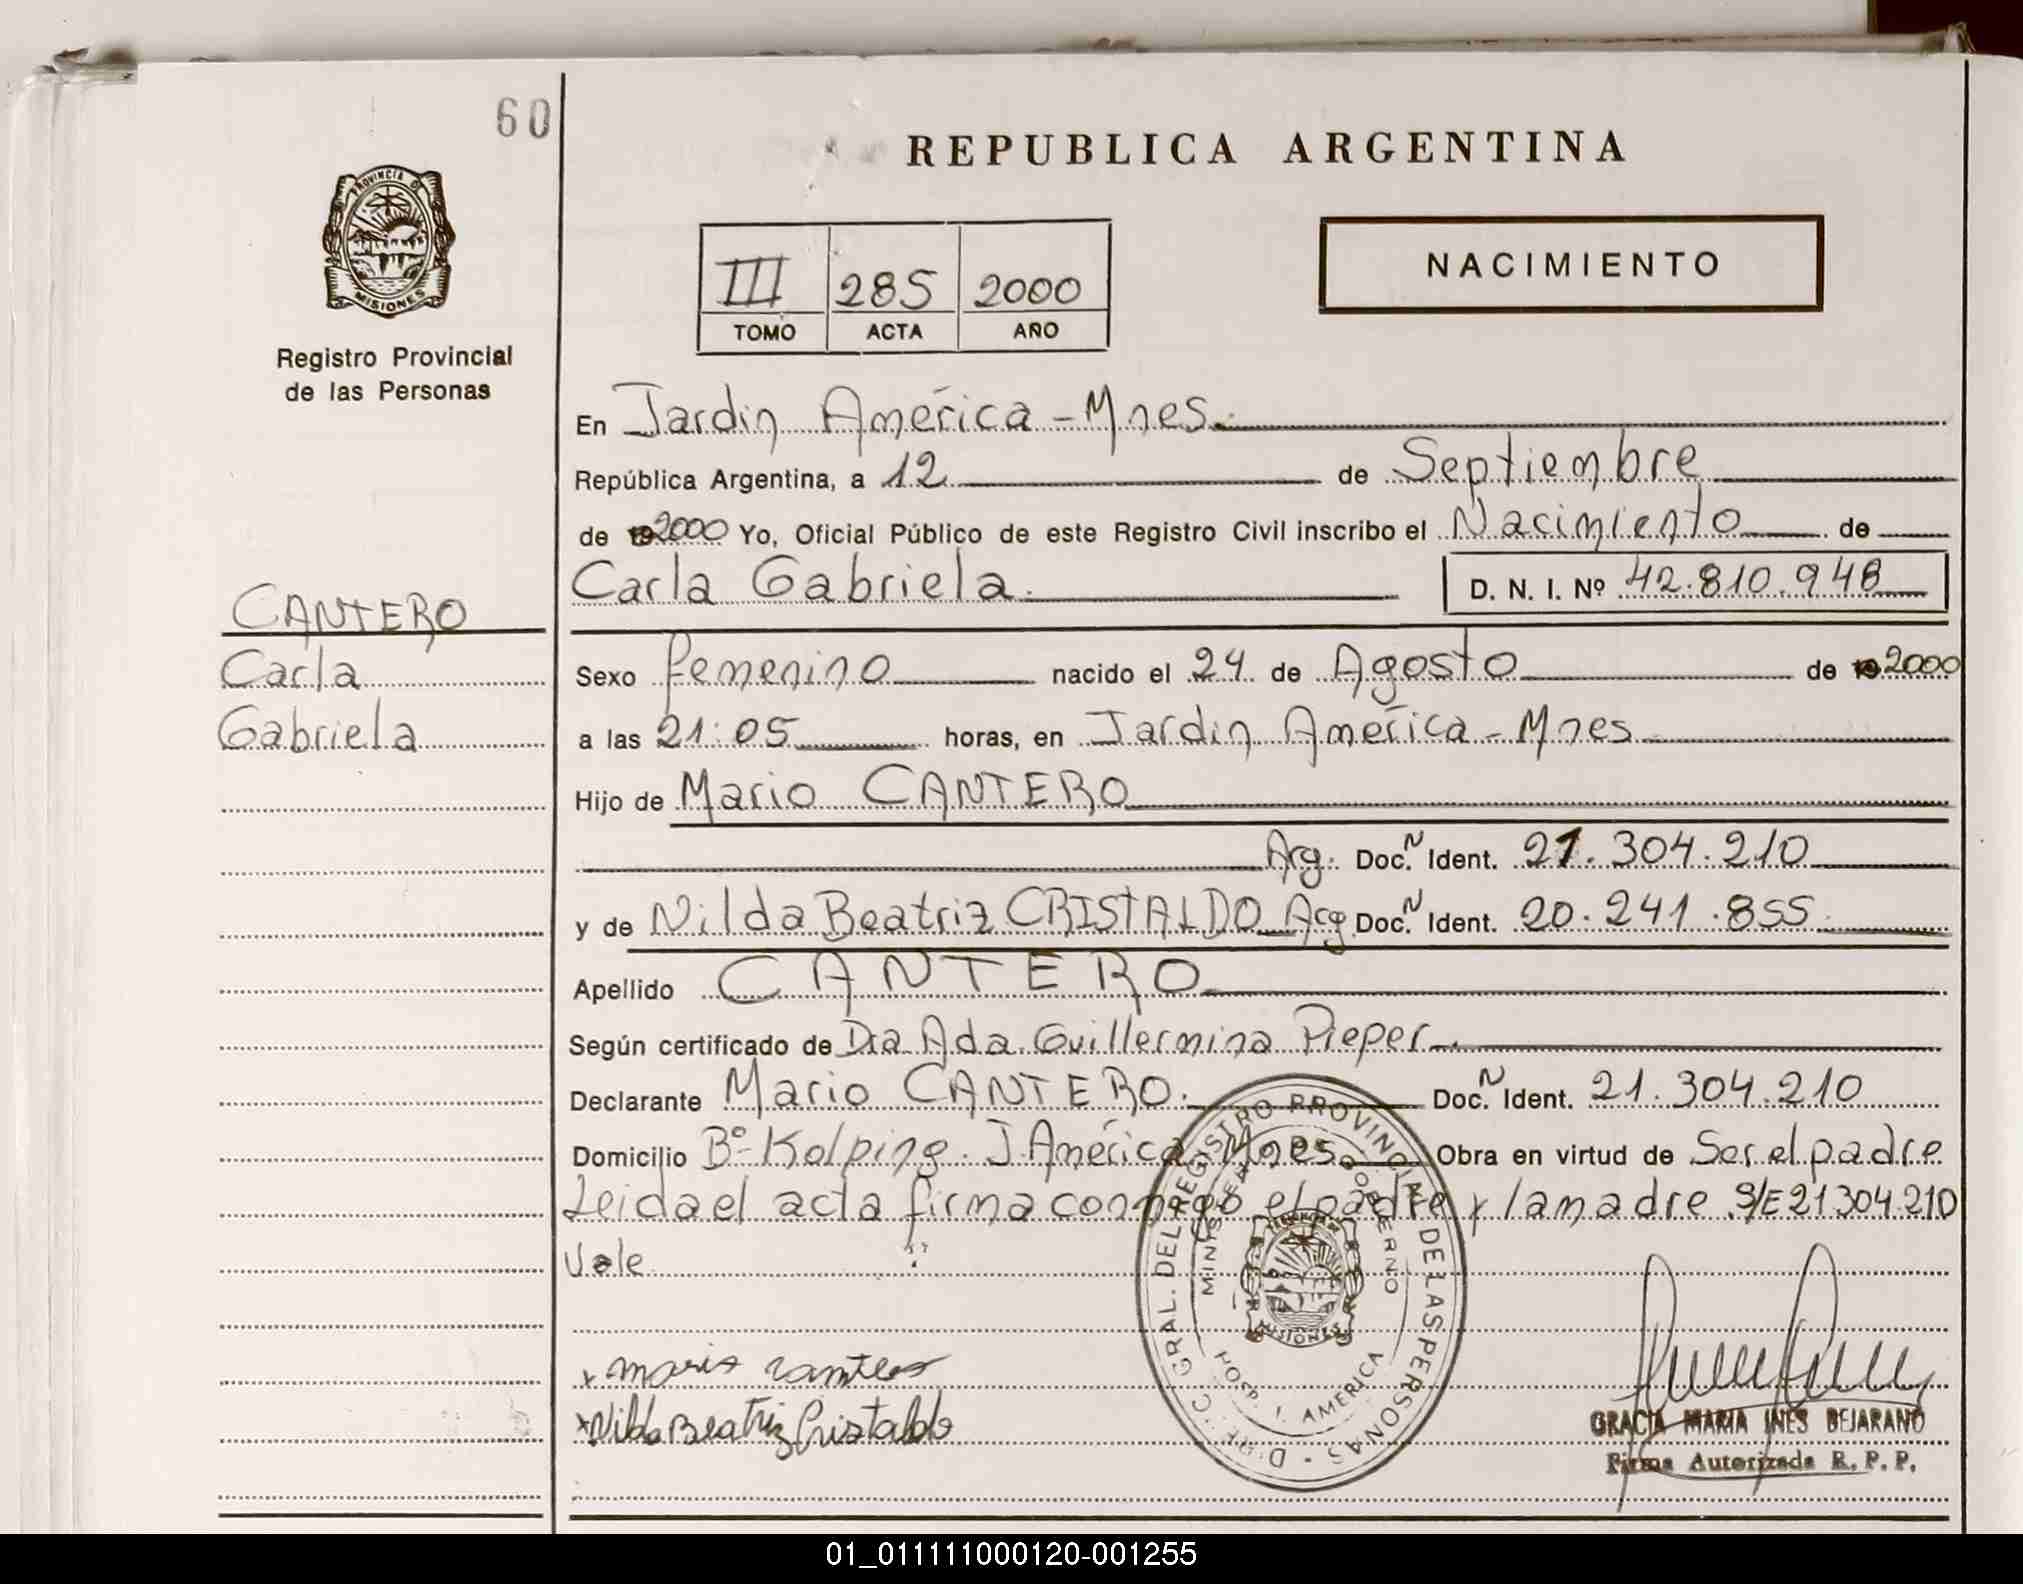 60
REPUBLICA ARGENTINA
PROVINCIA DE
MISIONES
III 285 2000
TOMO ACTA AÑO
NACIMIENTO
Registro Provincial
de las Personas
En Jardin América - Mnes.
República Argentina, a 12 de Septiembre
de 192000 Yo, Oficial Público de este Registro Civil inscribo el Nacimiento de
Carla Gabriela. D. N. I. Nº 42.810.948
CANTERO
Carla
Gabriela
Sexo femenino nacido el 24 de Agosto de 19 2000
a las 21:05 horas, en Jardin América - Mnes
Hijo de Mario CANTERO
Arg. Doc. N Ident. 21.304.210
y de Nilda Beatriz CRISTALDO Arg Doc. N Ident. 20.241.855
Apellido CANTERO
Según certificado de Dra Ada Guillermina Pieper.
Declarante Mario CANTERO. Doc. N Ident. 21.304.210
Domicilio Bº- Kolping. J. América Mnes. Obra en virtud de Ser el padre
Leida el acta firma conmigo el padre y la madre S/E 21304210
Vale
DIREC. GRAL. DEL REGISTRO PROVINCIAL DE LAS PERSONAS
MINISTERIO DE GOBIERNO
MISIONES
HOSP. J. AMERICA
x Mario Cantero
x Nilda Beatriz Cristaldo
GRACIA MARIA INES BEJARANO
Firma Autorizada R. P. P.
01_011111000120-001255